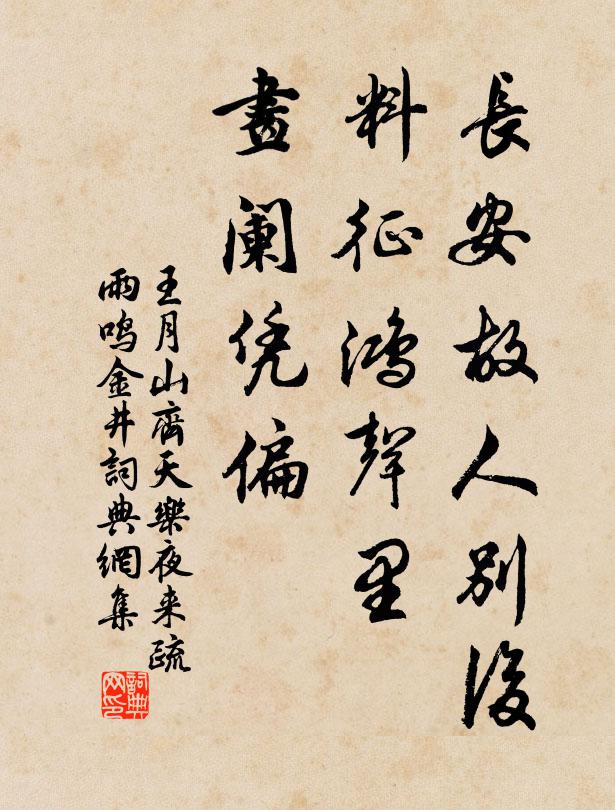 長安故人別後
料征鴻聲里
畫阑凭偏
王月山齊天樂夜来疏
雨鸣金井詞典網集
詞典
网印